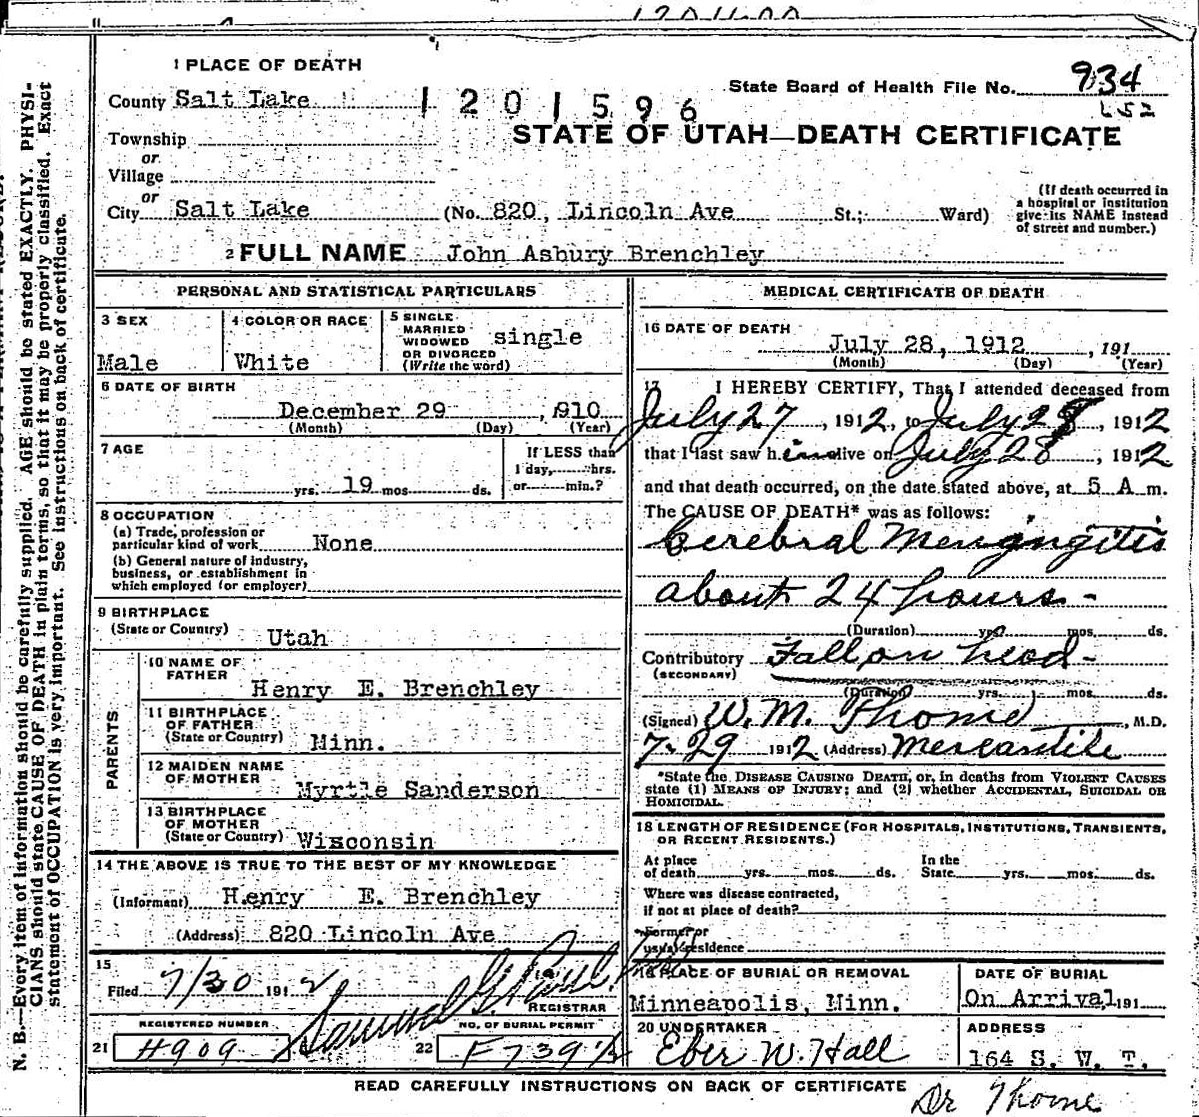 1 PLACE OF DEATH
County Salt Lake
1201596
State Board of Health File No. 934
STATE OF UTAH—DEATH CERTIFICATE
Township
or
Village
or
City Salt Lake (No. 820, Lincoln Ave St.; Ward)
(If death occurred in
a hospital or institution
give its NAME instead
of street and number.)
2 FULL NAME John Asbury Brenchley
PERSONAL AND STATISTICAL PARTICULARS
3 SEX
Male
4 COLOR OR RACE
White
5 SINGLE
MARRIED
WIDOWED
OR DIVORCED
(Write the word)
single
6 DATE OF BIRTH
December 29, 1910
(Month) (Day) (Year)
7 AGE
yrs. 19 mos. ds.
If LESS than
1 day, hrs.
or min.?
8 OCCUPATION
(a) Trade, profession or
particular kind of work None
(b) General nature of industry,
business, or establishment in
which employed (or employer)
9 BIRTHPLACE
(State or Country) Utah
PARENTS
10 NAME OF
FATHER
Henry E. Brenchley
11 BIRTHPLACE
OF FATHER
(State or Country) Minn.
12 MAIDEN NAME
OF MOTHER
Myrtle Sanderson
13 BIRTHPLACE
OF MOTHER
(State or Country) Wisconsin
14 THE ABOVE IS TRUE TO THE BEST OF MY KNOWLEDGE
(Informant) Henry E. Brenchley
(Address) 820 Lincoln Ave
15
Filed 7/30 1912
REGISTRAR
REGISTERED NUMBER
21 H909
NO. OF BURIAL PERMIT
22
MEDICAL CERTIFICATE OF DEATH
16 DATE OF DEATH
July 28, 1912, 191
(Month) (Day) (Year)
17 I HEREBY CERTIFY, That I attended deceased from
July 27, 1912, to July 28, 1912
that I last saw him alive on July 28, 1912
and that death occurred, on the date stated above, at 5 A m.
The CAUSE OF DEATH* was as follows:
Cerebral Meningitis
about 24 hours -
(Duration) yrs. mos. ds.
Contributory Fall on head -
(SECONDARY)
(Duration) yrs. mos. ds.
(Signed) W. M. Thome, M.D.
7-29 1912 (Address) Mercantile
*State the DISEASE CAUSING DEATH, or, in deaths from VIOLENT CAUSES
state (1) MEANS OF INJURY; and (2) whether ACCIDENTAL, SUICIDAL OR
HOMICIDAL.
18 LENGTH OF RESIDENCE (FOR HOSPITALS, INSTITUTIONS, TRANSIENTS,
OR RECENT RESIDENTS.)
At place
of death yrs. mos. ds.
In the
State yrs. mos. ds.
Where was disease contracted,
if not at place of death?
Former or
usual residence
19 PLACE OF BURIAL OR REMOVAL
Minneapolis, Minn.
DATE OF BURIAL
On Arrival, 191
20 UNDERTAKER
Eber W. Hall
ADDRESS
164 S. W. T.
READ CAREFULLY INSTRUCTIONS ON BACK OF CERTIFICATE
Dr Thome
N. B.—Every item of information should be carefully supplied. AGE should be stated EXACTLY. PHYSI-
CIANS should state CAUSE OF DEATH in plain terms, so that it may be properly classified. Exact
statement of OCCUPATION is very important. See instructions on back of certificate.